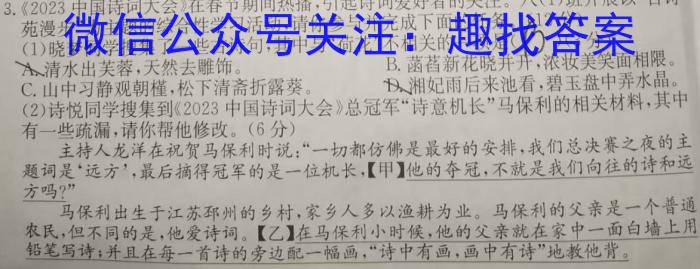 3.《2023中国诗词大会》在春节期间热播,引起诗词爱好者的关注。八(1)班开展以“古诗
苑漫步
微信公众号关注：趣找答案
A.清水出芙蓉,天然去雕饰。 B.菡萏新花晓并开,浓妆美笑面相隈。
C.山中习静观朝槿,松下清斋折露葵。 D.湘妃雨后来池看,碧玉盘中弄水晶。
(2)诗悦同学搜集到《2023中国诗词大会》总冠军“诗意机长”马保利的相关材料,其中
有一些疏漏,请你帮他修改。(6分)
主持人龙洋在祝贺马保利时说:“一切都仿佛是最好的安排,我们总决赛之夜的主
题词是‘远方’,最后摘得冠军的是一位机长,【甲】他的夺冠,不就是我们向往的诗和远
方吗?”
马保利出生于江苏邳州的乡村,家乡人多以渔耕为业。马保利的父亲是一个普通
农民,但不同的是,他爱诗词。【乙】在马保利小时候,他的父亲就在家中一面白墙上用
铅笔写诗;并且在每一首诗的旁边配一幅画,“诗中有画,画中有诗”地教他背。